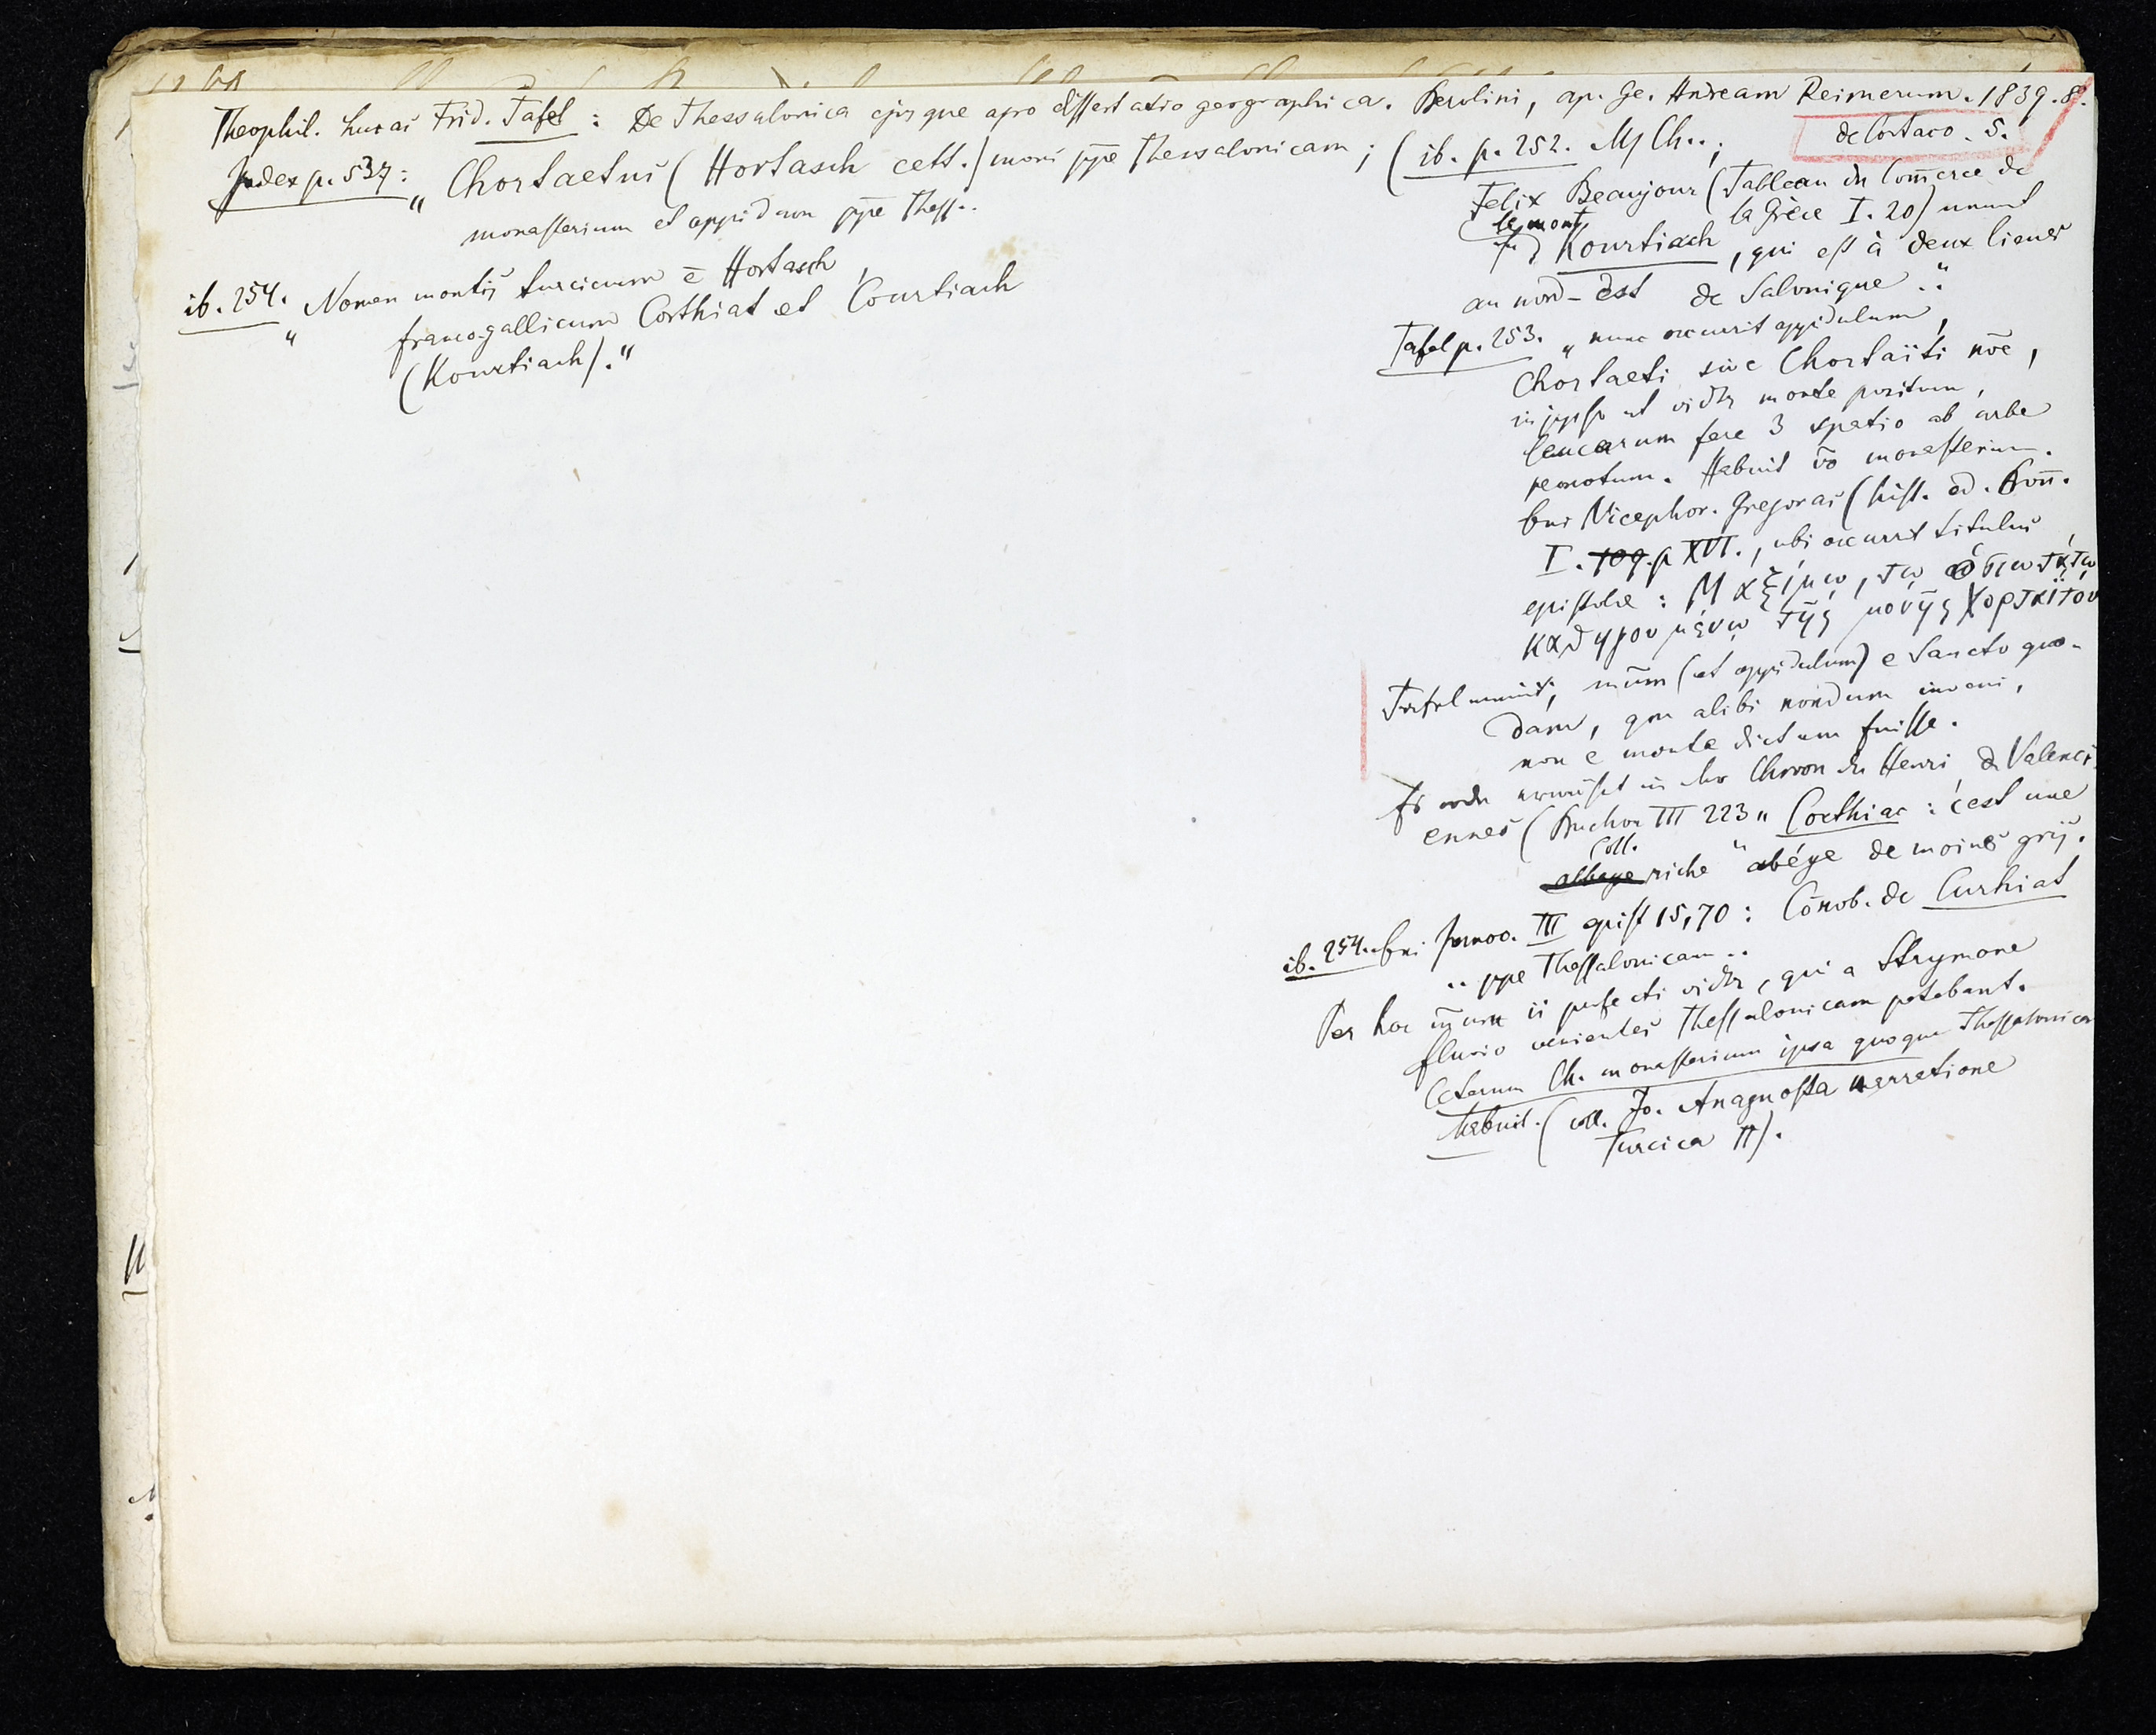 Theophil. Lucas Frid. Tafel : De Thessalonica ejusque agro dissertatio geographica. Berolini, ap. Ge. Andream Reimerum. 1839. 8°.
de Cortaco. S.
Index p. 537: „Chortaetus (Hortasch cett.) mons ppe Thessalonicam;
monasterium et oppidum ppe Thess..
ib. 254. „Nomen montis turcicum ē Hortasch,
francogallicum Corthiat et Courtiach
(Kourtiach)."
(ib. p. 252. M Ch..;
Felix Beaujour (Tableau du Com̄erce de
la Grèce I. 20)
le mont
Kourtiach, qui est à deux lieues
au nord-est de Salonique.."
Tafel p. 253. „nunc occurrit oppidulum,
Chortaeti sive Chortaïti nōe,
in ipso ut vidtr monte positum,
leucarum fere 3 spatio ab urbe
remotum. Habuit v̄o monasterium.
Nicephor. Gregoras (hist. ed. Bon̄.
I. 109. p XVI., ubi occurrit titulus
epistolae : Μαξίμῳ, τῷ ὁσιωτάτῳ
καθηγουμένῳ τῆς μονῆς Χορταΐτου
Tafel meint, (et oppidulum) e Sancto quo-
dam, quem alibi nondum inveni,
non e monte dictum fuisse.
Es erwähnt in der Chron des Henri de Valenci-
ennes (Buchon III 223 „Corthiac : c'est une
coll.
abbaye riche "abéye de moines gris.
ib. 254. Innoc. III epist 15,70 : Cōnob. de Curhiat
.. ppe Thessalonicam..
Per hoc ii profecti vidtr, qui a Strymone
fluvio venientes Thessalonicam petebant.
Ceterum Ch. monasterium ipsa quoque Thessalonica
habuit. (coll. Jo. Anagnosta narratione
Turcica 11).